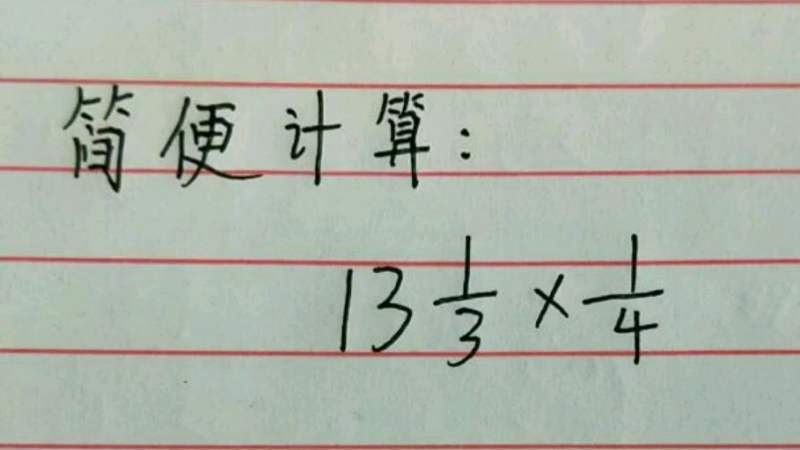 简便计算:
13 1/3 × 1/4